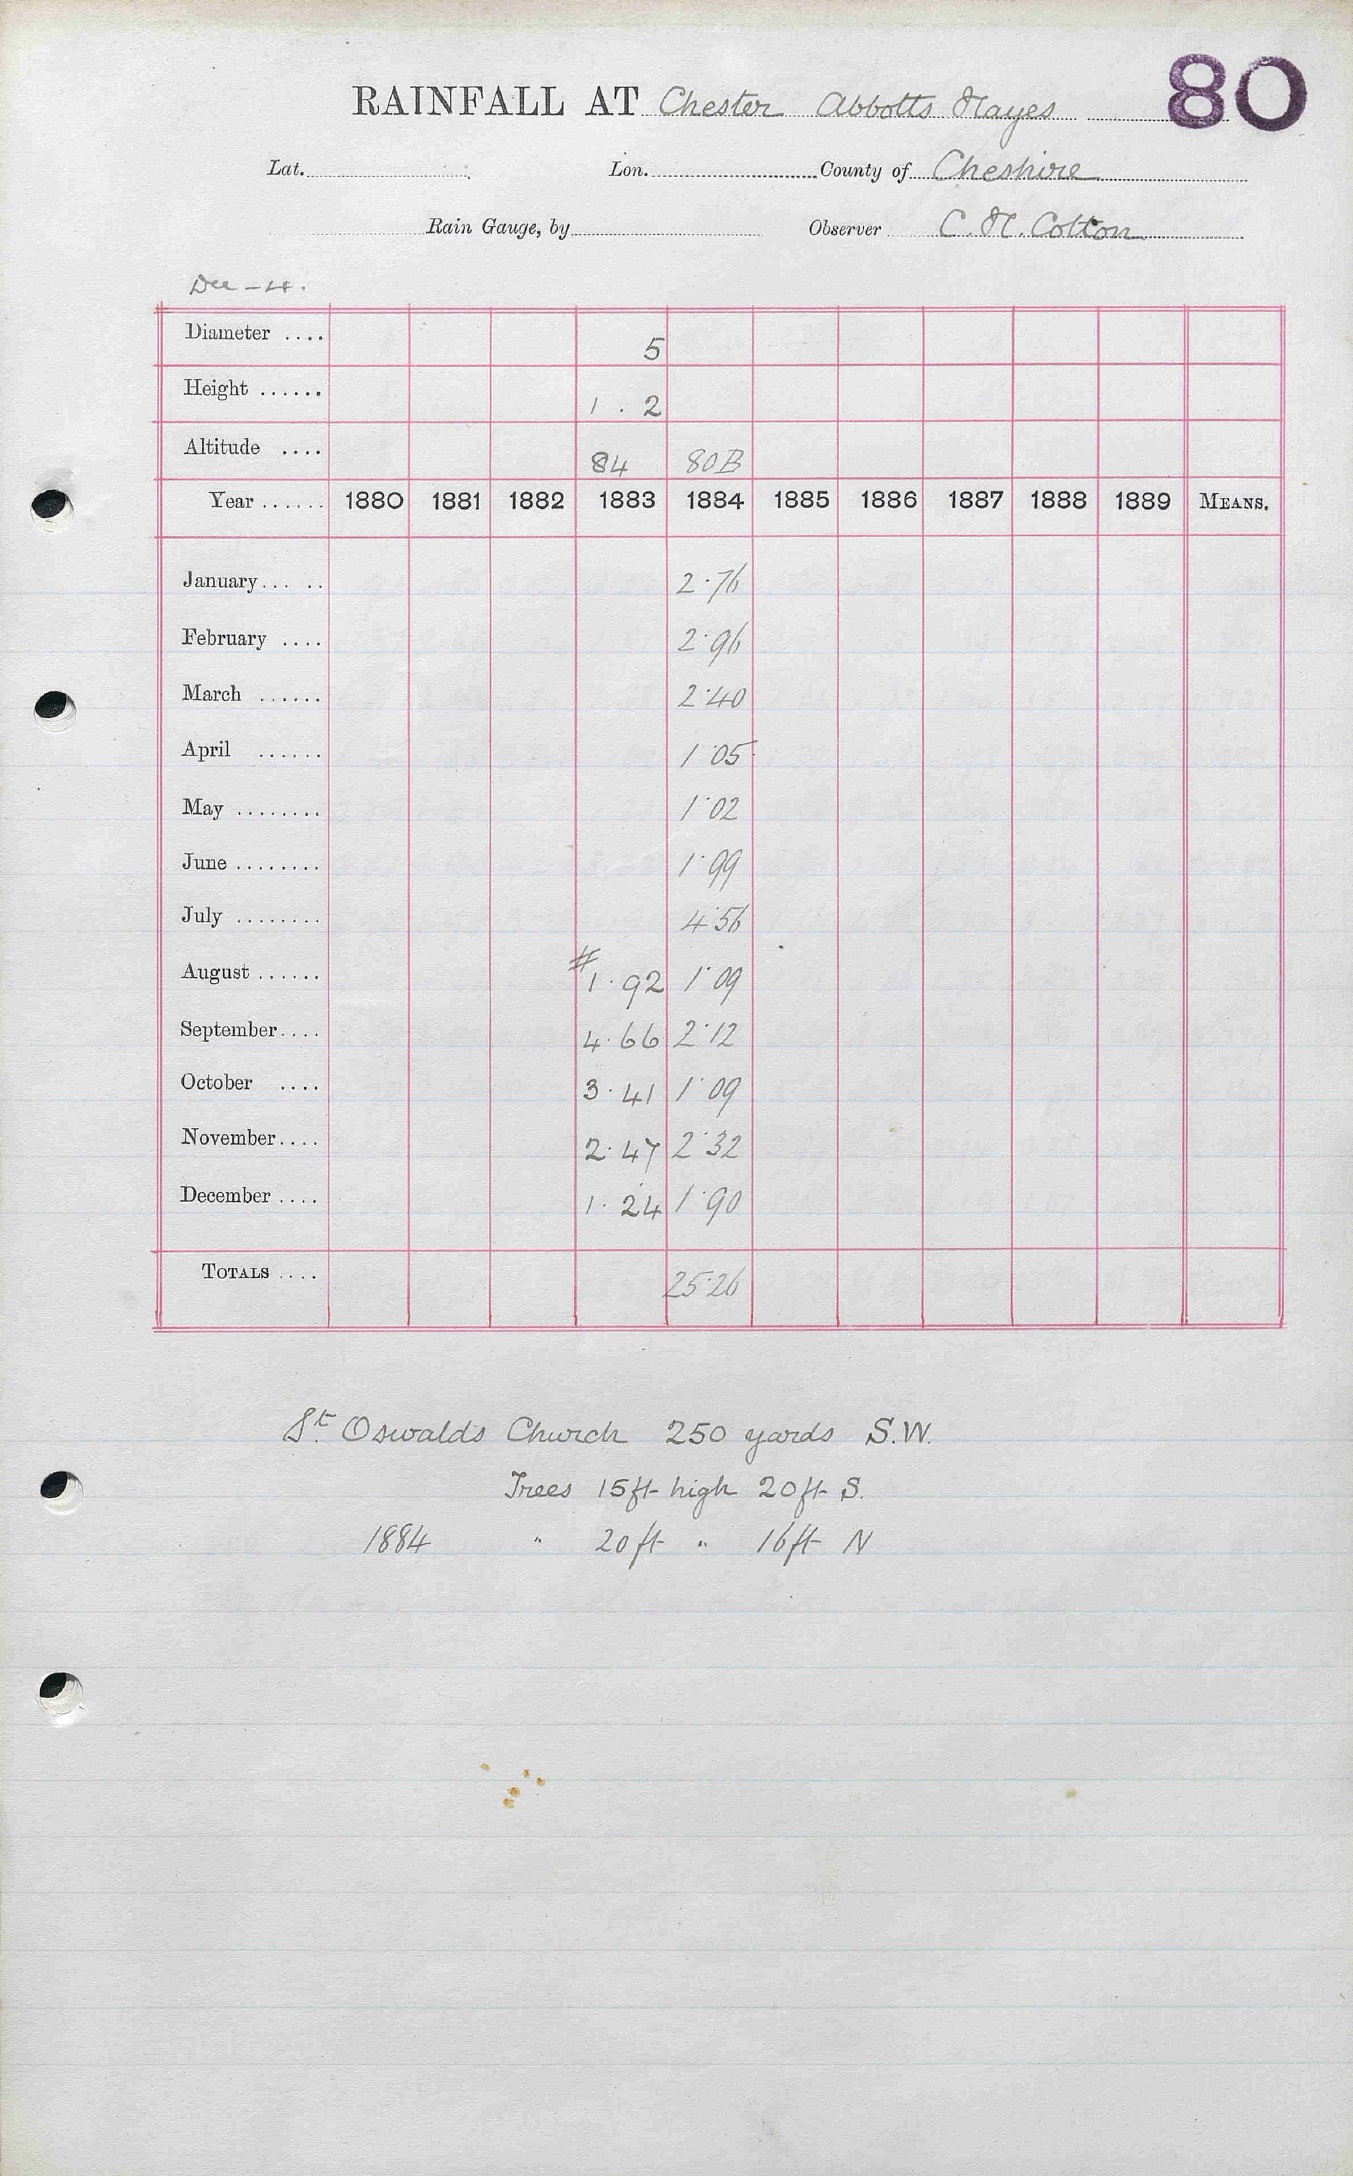 80
RAINFALL AT Chester Abbotts Hayes
Lat. Lon. County of Cheshire
Rain Gauge, by Observer C. H. Cotton
Dec - 4.
Diameter .... 5
Height ...... 1 . 2
Altitude .... 84 80B
Year ...... 1880 1881 1882 1883 1884 1885 1886 1887 1888 1889 MEANS.
January... .. 2.76
February .... 2.96
March ...... 2.40
April ...... 1.05
May ........ 1.02
June ........ 1.99
July ........ 4.56
August ...... # 1.92 1.09
September.... 4.66 2.12
October .... 3.41 1.09
November.... 2.47 2.32
December .... 1.24 1.90
TOTALS .... 25.26
St. Oswalds Church 250 yards S.W.
Trees 15ft high 20ft S.
1884 " 20ft " 16ft N